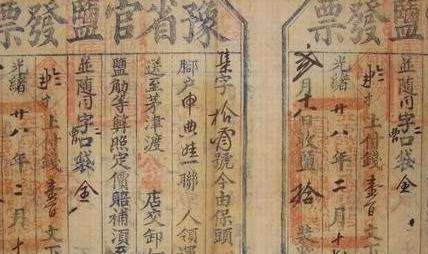 鹽發票
並隨付字口袋全
上付錢壹百文
光緒廿八年二月十
月十八日收鹽拾
豫省官鹽發票
集字拾號今由保頭
腳户申典娃一聯人領運
送至茅津渡店交卸
鹽觔等弊照定價賠補須至
並隨付字口袋全
上付錢壹百文下
光緒廿八年二月十